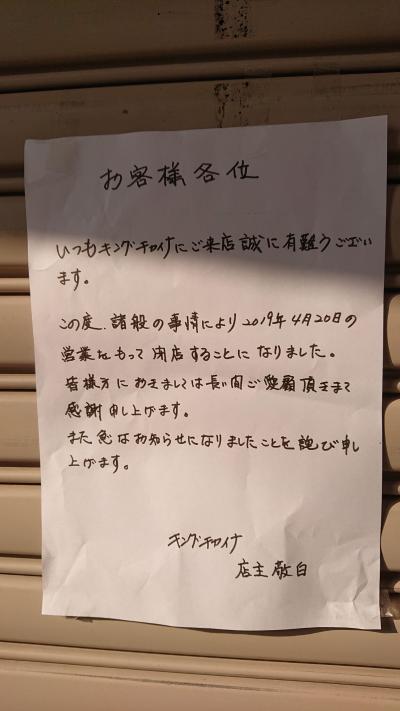 お客様各位
いつもキングチャイナにご来店誠に有難うござい
ます。
この度、諸般の事情により2019年4月20日の
営業をもって閉店することになりました。
皆様方におきましては長い間ご愛顧頂きまして
感謝申し上げます。
また急なお知らせになりましたことを詫び申し
上げます。
キングチャイナ
店主敬白